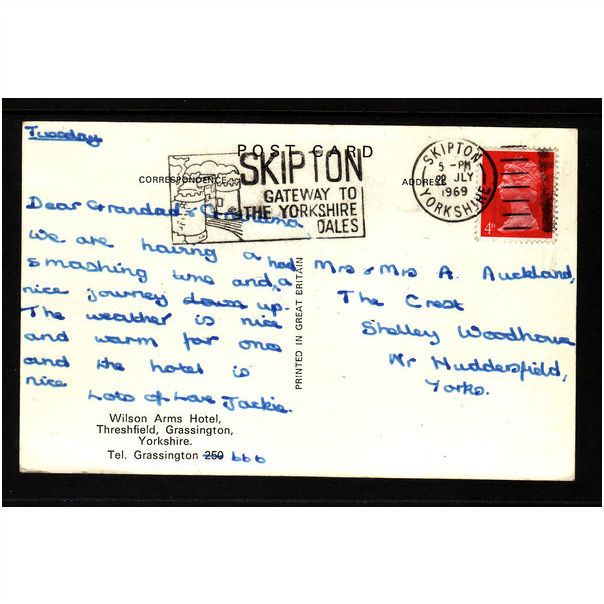 Tuesday
POST CARD
CORRESPONDENCE
ADDRESS
SKIPTON
GATEWAY TO
THE YORKSHIRE
DALES
SKIPTON
5 -PM
22 JLY
1969
YORKSHIRE
4D
Dear Grandad & Grandma
We are having a
smashing time and had a
nice journey down up.
The weather is nice
and warm for once
and the hotel is
nice
Lots of Love Jackie.
Wilson Arms Hotel,
Threshfield, Grassington,
Yorkshire.
Tel. Grassington 250 666
PRINTED IN GREAT BRITAIN
Mrs & Mrs A. Auckland,
The Crest
Shelley Woodhouse
Nr Huddersfield,
Yorks.